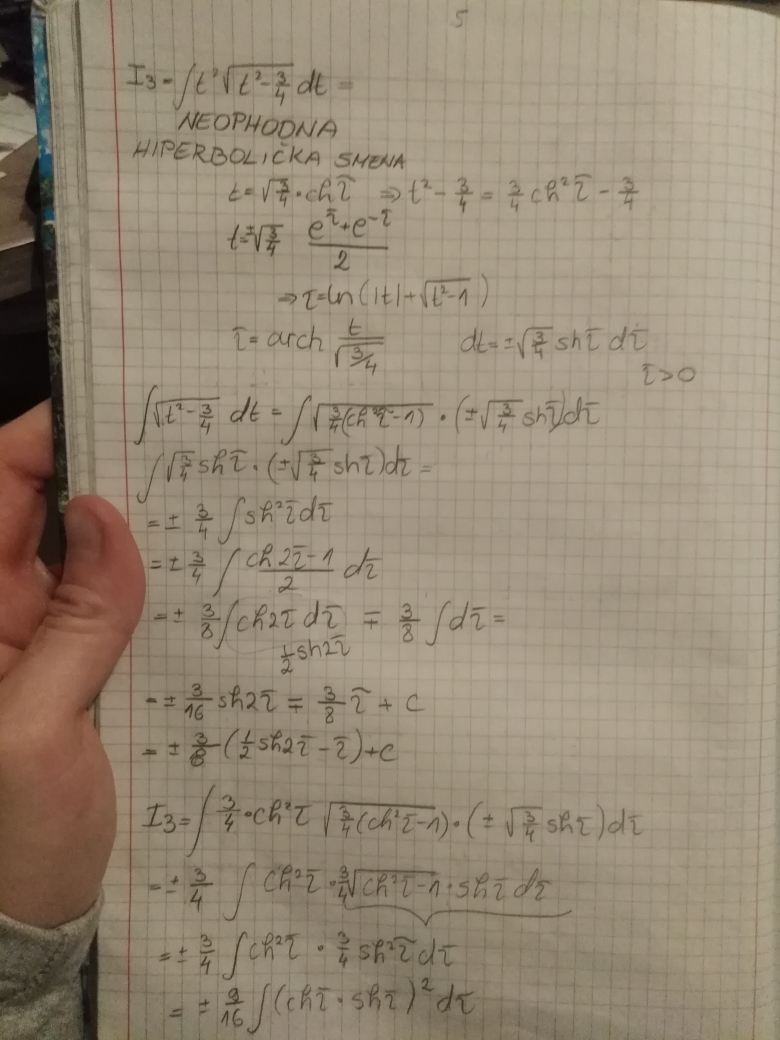 5
I3 = ∫t²√(t² - 3/4) dt =
NEOPHODNA
HIPERBOLIČKA SMENA
t = √(3/4) · ch τ̄ ⇒ t² - 3/4 = 3/4 ch² τ̄ - 3/4
t = ±√(3/4) (e^τ̄ + e^-τ̄)/2
⇒ τ̄ = ln(|t| + √(t² - 1))
τ̄ = arch t/√(3/4) dt = ±√(3/4) sh τ̄ dτ̄
τ̄ > 0
∫√(t² - 3/4) dt = ∫√(3/4(ch² τ̄ - 1)) · (±√(3/4) sh τ̄)dτ̄
∫√(3/4) sh τ̄ · (±√(3/4) sh τ̄)dτ̄ =
= ± 3/4 ∫sh² τ̄ dτ̄
= ± 3/4 ∫ (ch 2τ̄ - 1)/2 dτ̄
= ± 3/8 ∫ch 2τ̄ dτ̄ ∓ 3/8 ∫dτ̄ =
1/2 sh 2τ̄
= ± 3/16 sh 2τ̄ ∓ 3/8 τ̄ + C
= ± 3/8 (1/2 sh 2τ̄ - τ̄) + C
I3 = ∫ 3/4 · ch² τ̄ √(3/4(ch² τ̄ - 1)) · (± √(3/4) sh τ̄)dτ̄
= ± 3/4 ∫ ch² τ̄ · 3/4 √(ch² τ̄ - 1) · sh τ̄ dτ̄
= ± 3/4 ∫ch² τ̄ · 3/4 sh² τ̄ dτ̄
= ± 9/16 ∫(ch τ̄ · sh τ̄)² dτ̄